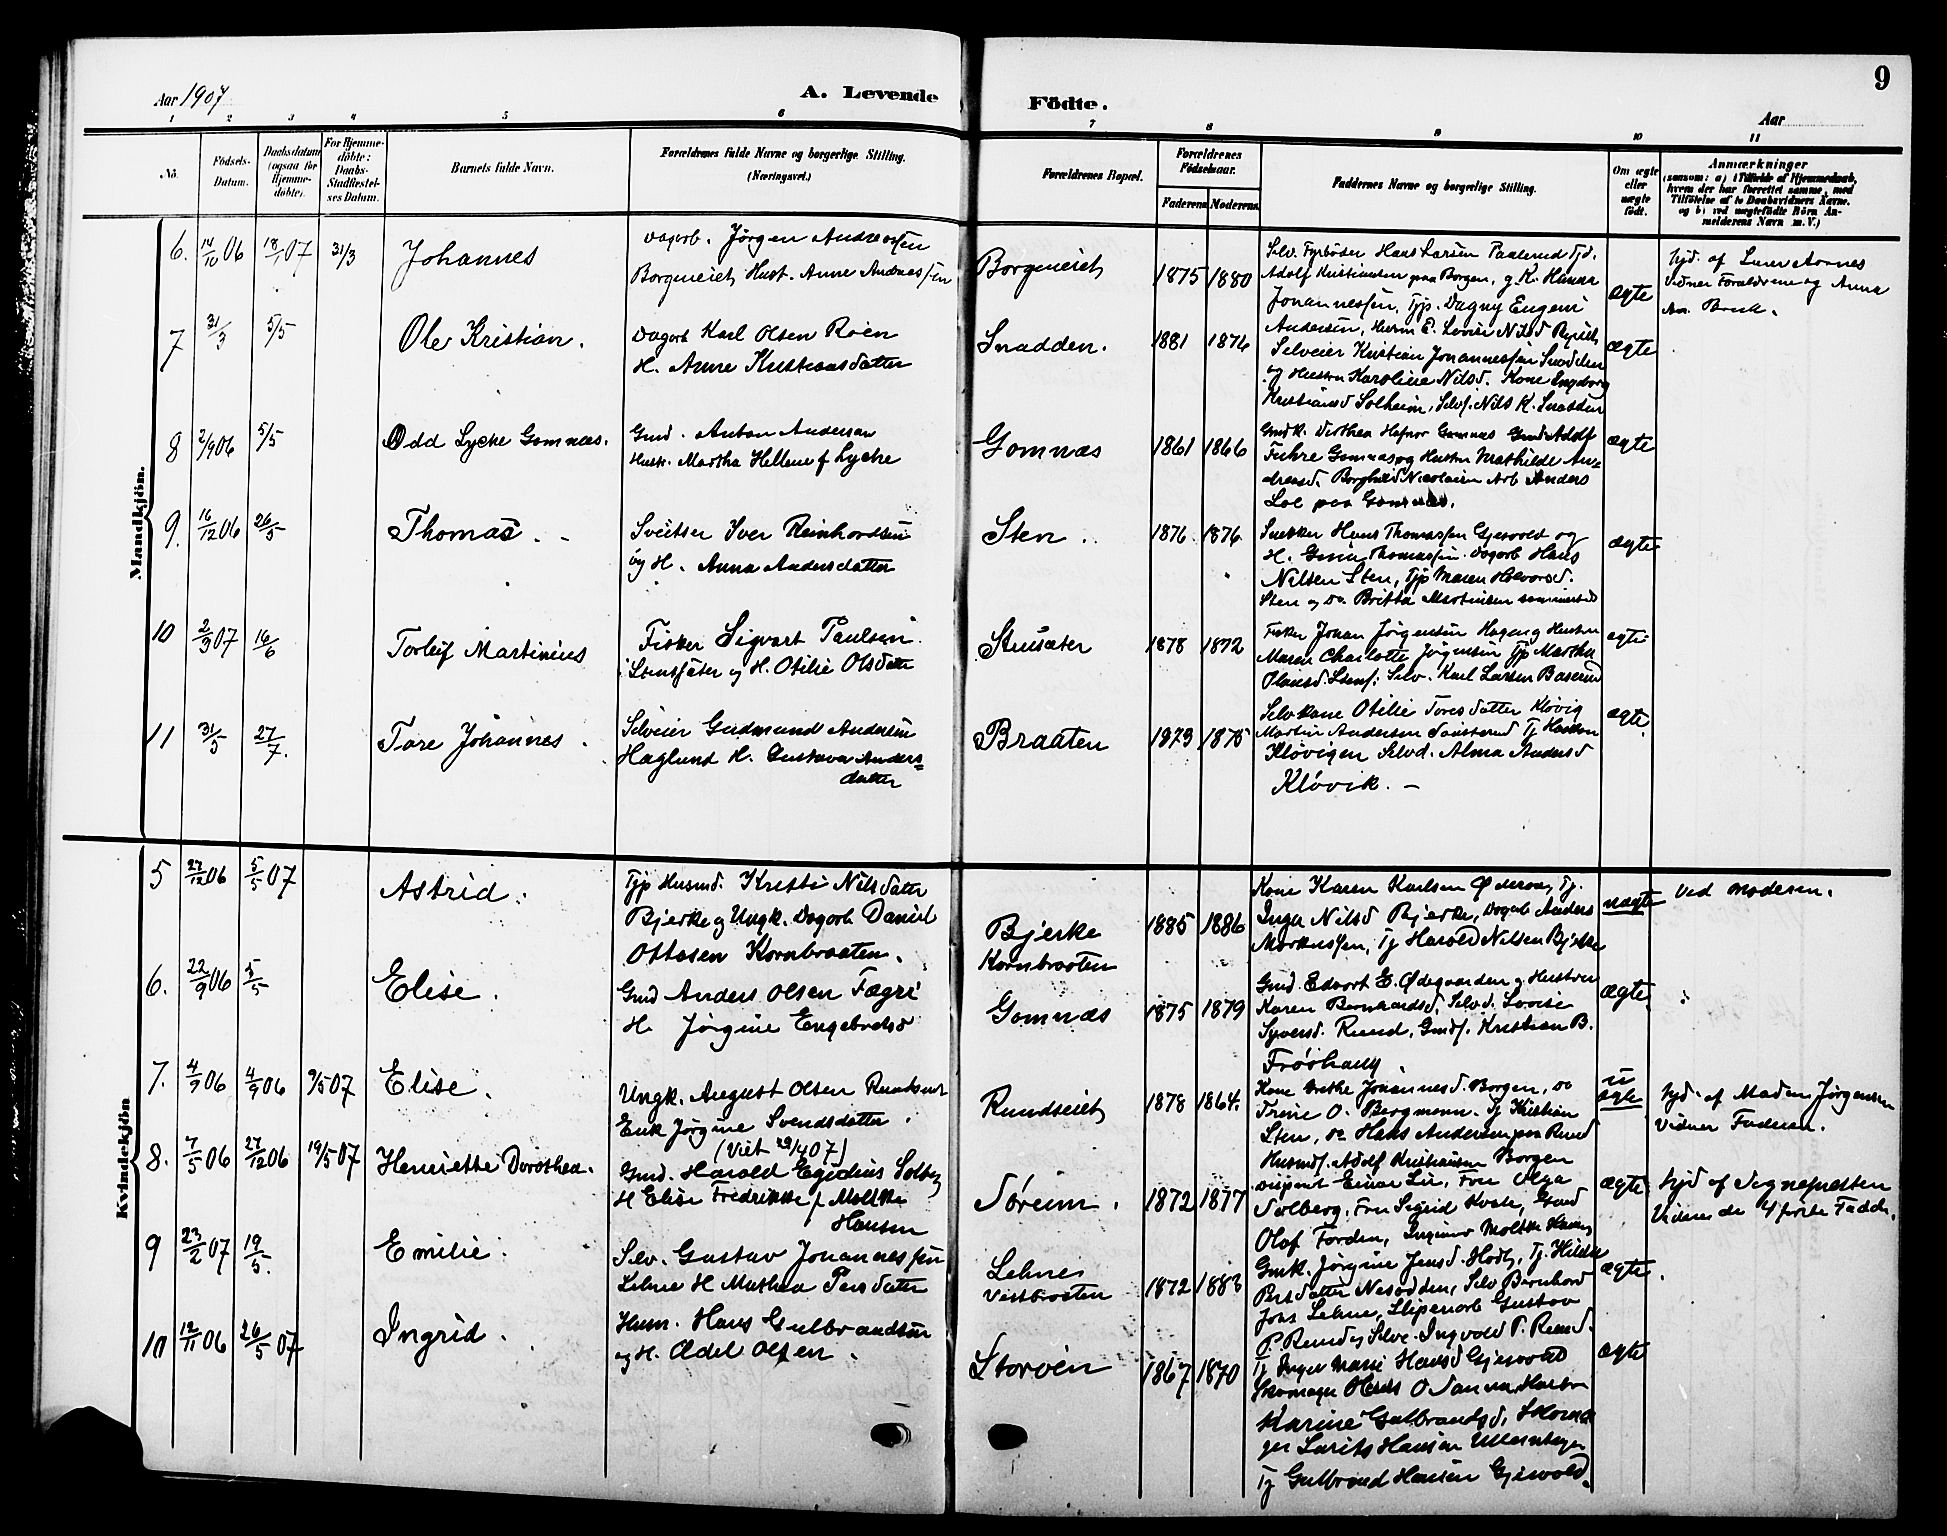 Aar 1907
A. Levende
Födte.
9
Aar
1 2 3 4 5 6 7 8 9 10 11
No.
Födsels-
Datum.
Daabsdatum
(ogsaa for
Hjemme-
döbte).
For Hjemme-
döbte:
Daabs-
Stadfæstel-
ses Datum.
Barnets fulde Navn.
Forældrenes fulde Navne og borgerlige Stilling.
(Næringsvei.)
Forældrenes Bopæl.
Forældrenes
Födselsaar.
Faderens
Moderens
Faddernes Navne og borgerlige Stilling.
Om ægte
eller
uægte
födt.
Anmærkninger
(saasom: a) i Tilfælde af Hjemmedaab,
hvem der har forrettet samme, med
Tilföielse af to Daabsvidners Navne.
og b) ved uægtefödte Börn An-
melderens Navn m. V.)
Mandkjön.
6. 14/10 06 18/1 07 31/3 Johannes
Dagarb. Jørgen Andreassen
Borgeneiet, Hust. Anne Andreassen
Borgeneiet 1875 1880
Selv. Fyrbøder Hans Larsen Paalerud Tj.
Adolf Kristiansen paa Borgen, g. K. Hanna
Johannessen, Tjp. Dagny Eugeni
ægte
Hjd. af
Vidner Forældrene og Anna
An. Brek.
7 31/3 5/5 Ole Kristian.
Dagarb Karl Olsen Roen
H. Anne Kristiansdatter
Snadden. 1881 1876
Andersen,
Selveier Kristian Johannessen Snadden
og Hustru Karoline Nilsd. Kone Ingeborg
Kristiansd Solheim, Selvs. Nils K. Snadden
ægte
8 2/9 06 5/5 Odd Lycke Gomnæs.
Gmd. Anton Andersen
Hustr. Martha Hellene f Lycke
Gomnæs 1861 1866
Gmdk. Dorthea Hafnor Gomnæs Gmd Adolf
Fuhre Gomnæs og Hustru Mathilde An-
dreasd. Borghild Nicolaisen Arb Anders
Loe paa Gomnæs.
ægte
9. 16/12 06 26/5 Thomas.
Sveitser Iver Reinhardtsen
og H. Anna Andersdatter
Sten. 1876 1876
Snekker Hans Thomassen Gjesvold og
H. Gina Thomassen. Dagarb Hans
Nilsen Sten, Tjp Maren Halvorsd.
Sten og Do. Britta Martinsen
ægte
10 2/3 07 16/6 Torleif Martinius
Fisker Sigvart Paulsen
i Stensæter og H. Otilie Olsdatter
Stensæter 1878 1872
Fisker Johan Jørgensen Hagen og Hustru
Maren Charlotte Jørgensen Tjp Martha
Olausd. Stens: Selv. Karl Larsen Baserud
ægte
11 31/5 27/7. Tore Johannes
Selveier Gudmund Andersen
Haglund H. Gustava Anders-
datter
Braaten 1873 1875
Selv Kone Otilie Toresdatter Kløvig
Martin Andersen Tj Haakon
Kløvigen Selvd. Alma Andersd
Kløvik. —
ægte.
Kvindekjön
5 27/12 06 5/5 07 Astrid.
Tjp Husmd. Kristi Nilsdatter
Bjerke og Ungk. Dagarb Daniel
Ottosen Kornbraaten.
Bjerke
Kornbraaten
1885 1886
Kone Karen Karlsen Tj.
Inga Nilsd Bjerke, Dagarb Anders
Markussen, Tj Harald Nilsen Bjerke
uægte
Ved Moderen.
6. 22/9 06 5/5 Elise.
Gmd Anders Olsen Fægri
H. Jørgine Engebretsd
Gomnæs 1875 1879
Gmd. Edvart E. Ødegaarden og Hustru
Karen Bernhardsd, Selvd. Lovise
Syversd. Rund, Gmds. Kristian B.
Frøshaug.
ægte.
7. 4/9 06 4/9 06 9/5 07 Elise.
Ungk. August Olsen Rundseiet
Enk Jørgine Svendsdatter.
(Viet 29/4 07)
Rundseiet 1878 1864.
Kone Grethe Johannesd. Borgen, do
Trine O. Bergmann. Tj Kristian
Sten, do Hans Andersen paa Rund
Husmds. Adolf Kristiansen Borgen
u
ægte
Hjd. af Maden Jørgensen
Vidner Faderen.
8. 7/5 06 27/12 06 19/5 07 Henriette Dorothea.
Gmd. Harald Egidius Solberg
H Elise Fredrikke f Moltke
Hansen
Søreim. 1872 1877
Disponent Einar Lie, Fru Olga
Solberg, Fru Sigrid Kvale, Gmd
Olaf Forden, Ingeniør Moltke Hansen
ægte
Hjd af Sognepresten
Vidner de 4 første Fadd.
9 23/2 07 19/5. Emilie.
Selv. Gustav Johannessen
Lehne H Mathea Persdatter
Lehne
Vestbraaten
1872 1883
Gmk. Jørgine Jensd. Tj. Hilda
Persdatter Nesodden, Selv Bernhard
Jons Lehne, Sliperiarb Gustav
P. Rund og Selve. Ingvald P. Rund.
ægte.
10 12/11 06 26/5 07 Ingrid.
Husm. Hans Gulbrandsen
og H. Ædel Olsen.
Storøen 1867 1870
Tj Inger Marie Hansd Gjesvold
Skomager
Karine Gulbrandsd, Skoma
ger Laurits Hansen
Tj Gulbrand Hansen Gjesvold.
ægte